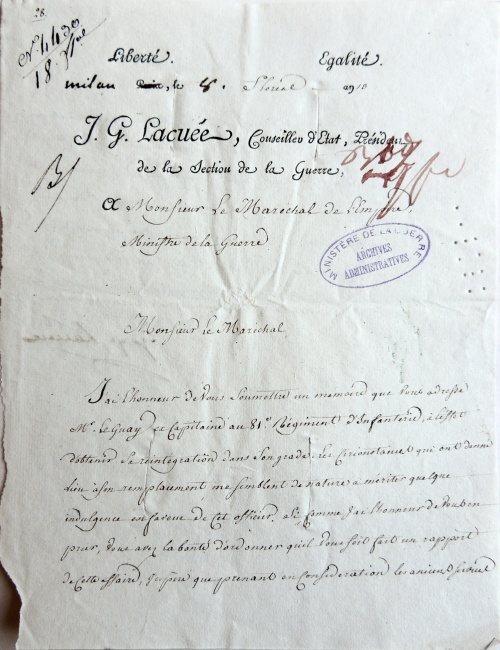 28.
N° 4430
18.
Liberté. Egalité.
milan le 8. Floréal an 13
J. G. Lacuée, Conseiller d'Etat, Président
de la Section de la Guerre,
A Monsieur Le Maréchal de l'Empire,
Ministre de la Guerre
MINISTÈRE DE LA GUERRE
ARCHIVES
ADMINISTRATIVES
Monsieur Le Maréchal
J'ai l'honneur de Vous Soumettre un mémoire que Vous adresse
Mr. Le Guay Capitaine au 81e Régiment d'Infanterie, à l'effet
d'obtenir Sa réintégration dans Son grade. Les circonstances qui ont donné
lieu à Son remplacement me Semblent de nature à mériter quelque
indulgence en faveur de Cet officier, et Si comme J'ai l'honneur de Vous en
prier, Vous avez la bonté d'ordonner qu'il Vous Soit fait un rapport
de Cette affaire, J'espère que prenant en Considération les anciens Services